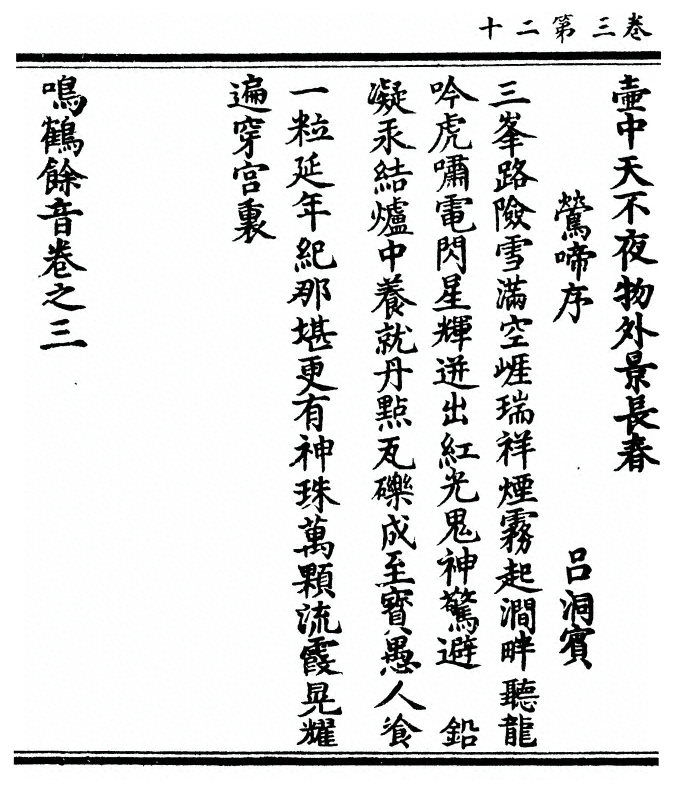 卷三第二十
壺中天不夜物外景長春
鶯啼序　呂洞賓
三峯路險雪滿空崕瑞祥煙霧起澗畔聽龍
吟虎嘯電閃星輝迸出紅光鬼神驚避　鉛
凝汞結爐中養就丹點瓦礫成至寶愚人飡
一粒延年紀那堪更有神珠萬顆流霞晃耀
遍穿宮裏
鳴鶴餘音卷之三